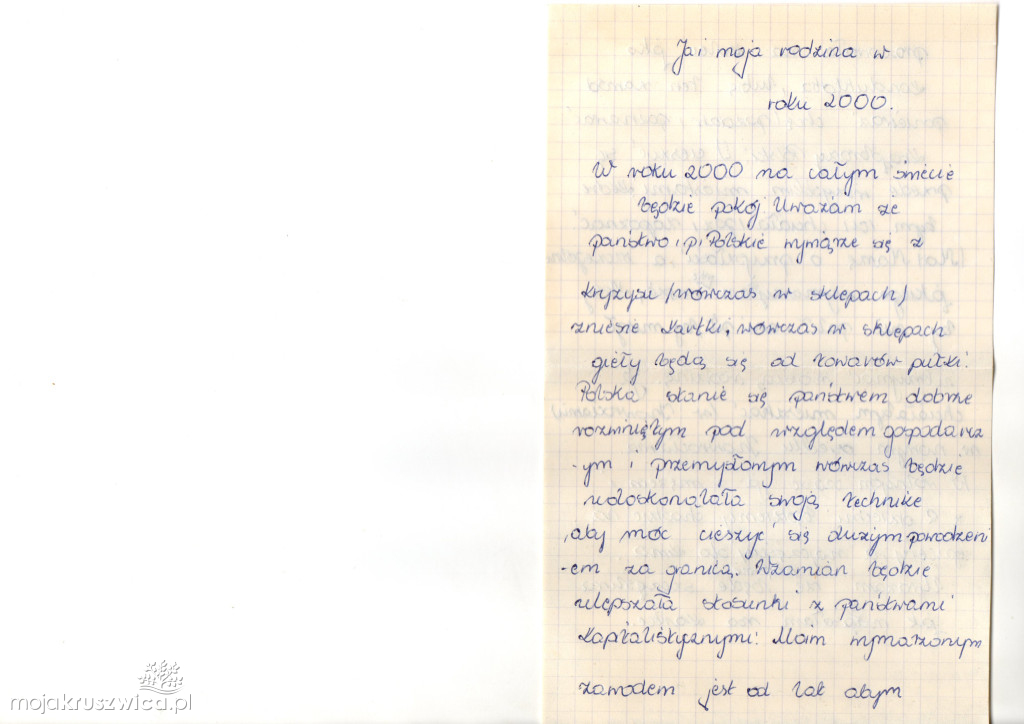 Ja i moja rodzina w
roku 2000.
W roku 2000 na całym świecie
będzie pokój Uważam że
państwo Polskie wymarze się z
kryzysu /wówczas w sklepach/
zniesie kartki, wówczas w sklepach
gięły będą się od towarów pułki.
Polska stanie się państwem dobrze
rozwiniętym pod względem gospodarcz
-ym i przemysłowym wówczas będzie
udoskonalała swoją technikę
,aby móc cieszyć się dużym powodzeni
-em za granicą. Wzamian będzie
ulepszała stosunki z państwami
kapitalistycznymi. Moim wymarzonym
zawodem jest od lat abym
mojakruszwica.pl